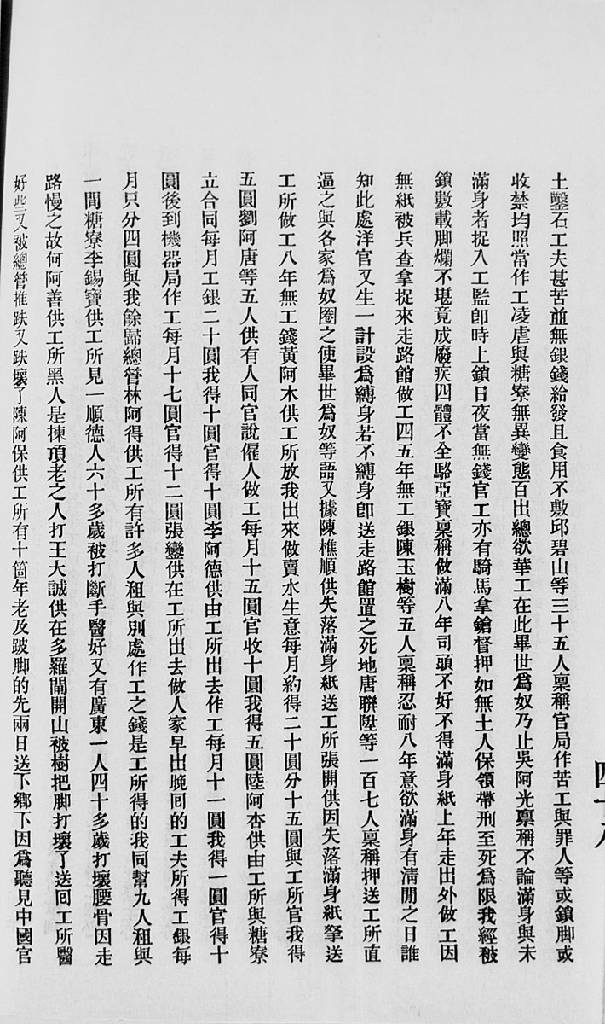 土鑿石工夫甚苦並無銀錢給發且食用不敷邱碧山等三十五人稟稱官局作苦工與罪人等或鎖脚或
收禁均照當作工凌虐與糖寮無異變態百出總欲華工在此畢世爲奴乃止吳阿光稟稱不論滿身與未
滿身者捉入工監卽時上鎖日夜當無錢官工亦有騎馬拿鎗督押如無土人保領帶刑至死爲限我經被
鎖數載脚爛不堪竟成廢疾四體不全駱亞寶稟稱做滿八年司頭不好不得滿身紙上年走出外做工因
無紙被兵查拿捉來走路館做工四五年無工銀陳玉樹等五人稟稱忍耐八年意欲滿身有清閒之日誰
知此處洋官又生一計設爲縛身若不縛身卽送走路館置之死地唐聯陞等一百七人稟稱押送工所直
逼之與各家爲奴圈之使畢世爲奴等語又據陳樵順供失落滿身紙送工所張開供因失落滿身紙拏送
工所做工八年無工錢黃阿木供工所放我出來做賣水生意每月約得二十圓分十五圓與工所官我得
五圓劉阿唐等五人供有人同官說僱人做工每月十五圓官收十圓我得五圓陸阿杏供由工所與糖寮
立合同每月工銀二十圓我得十圓官得十圓李阿德供由工所出去作工每月十一圓我得一圓官得十
圓後到機器局作工每月十七圓官得十二圓張孌供在工所出去做人家早出晚回的工夫所得工銀每
月只分四圓與我餘歸總管林阿得供工所有許多人租與別處作工之錢是工所得的我同幫九人租與
一間糖寮李錫寶供工所見一順德人六十多歲被打斷手醫好又有廣東一人四十多歲打壞腰骨因走
路慢之故何阿善供工所黑人是揀項老之人打王大誠供在多羅閘開山被樹把脚打壞了送回工所醫
好些又被總管推跌又跌壞了陳阿保供工所有十箇年老及跛脚的先兩日送下鄉下因爲聽見中國官